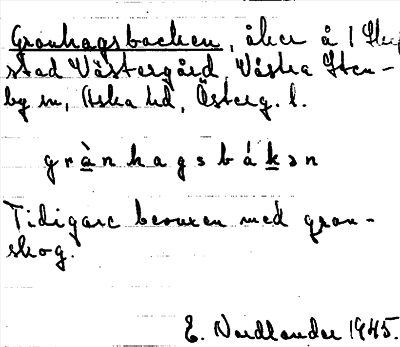 Granhagsbacken, åker å 1
stad Västergård, Västra Sten-
by sn, Aska hd, Österg. l.
grànhagsbákən
Tidigare bevuxen med gran-
skog.
E. Nordlander 1945.